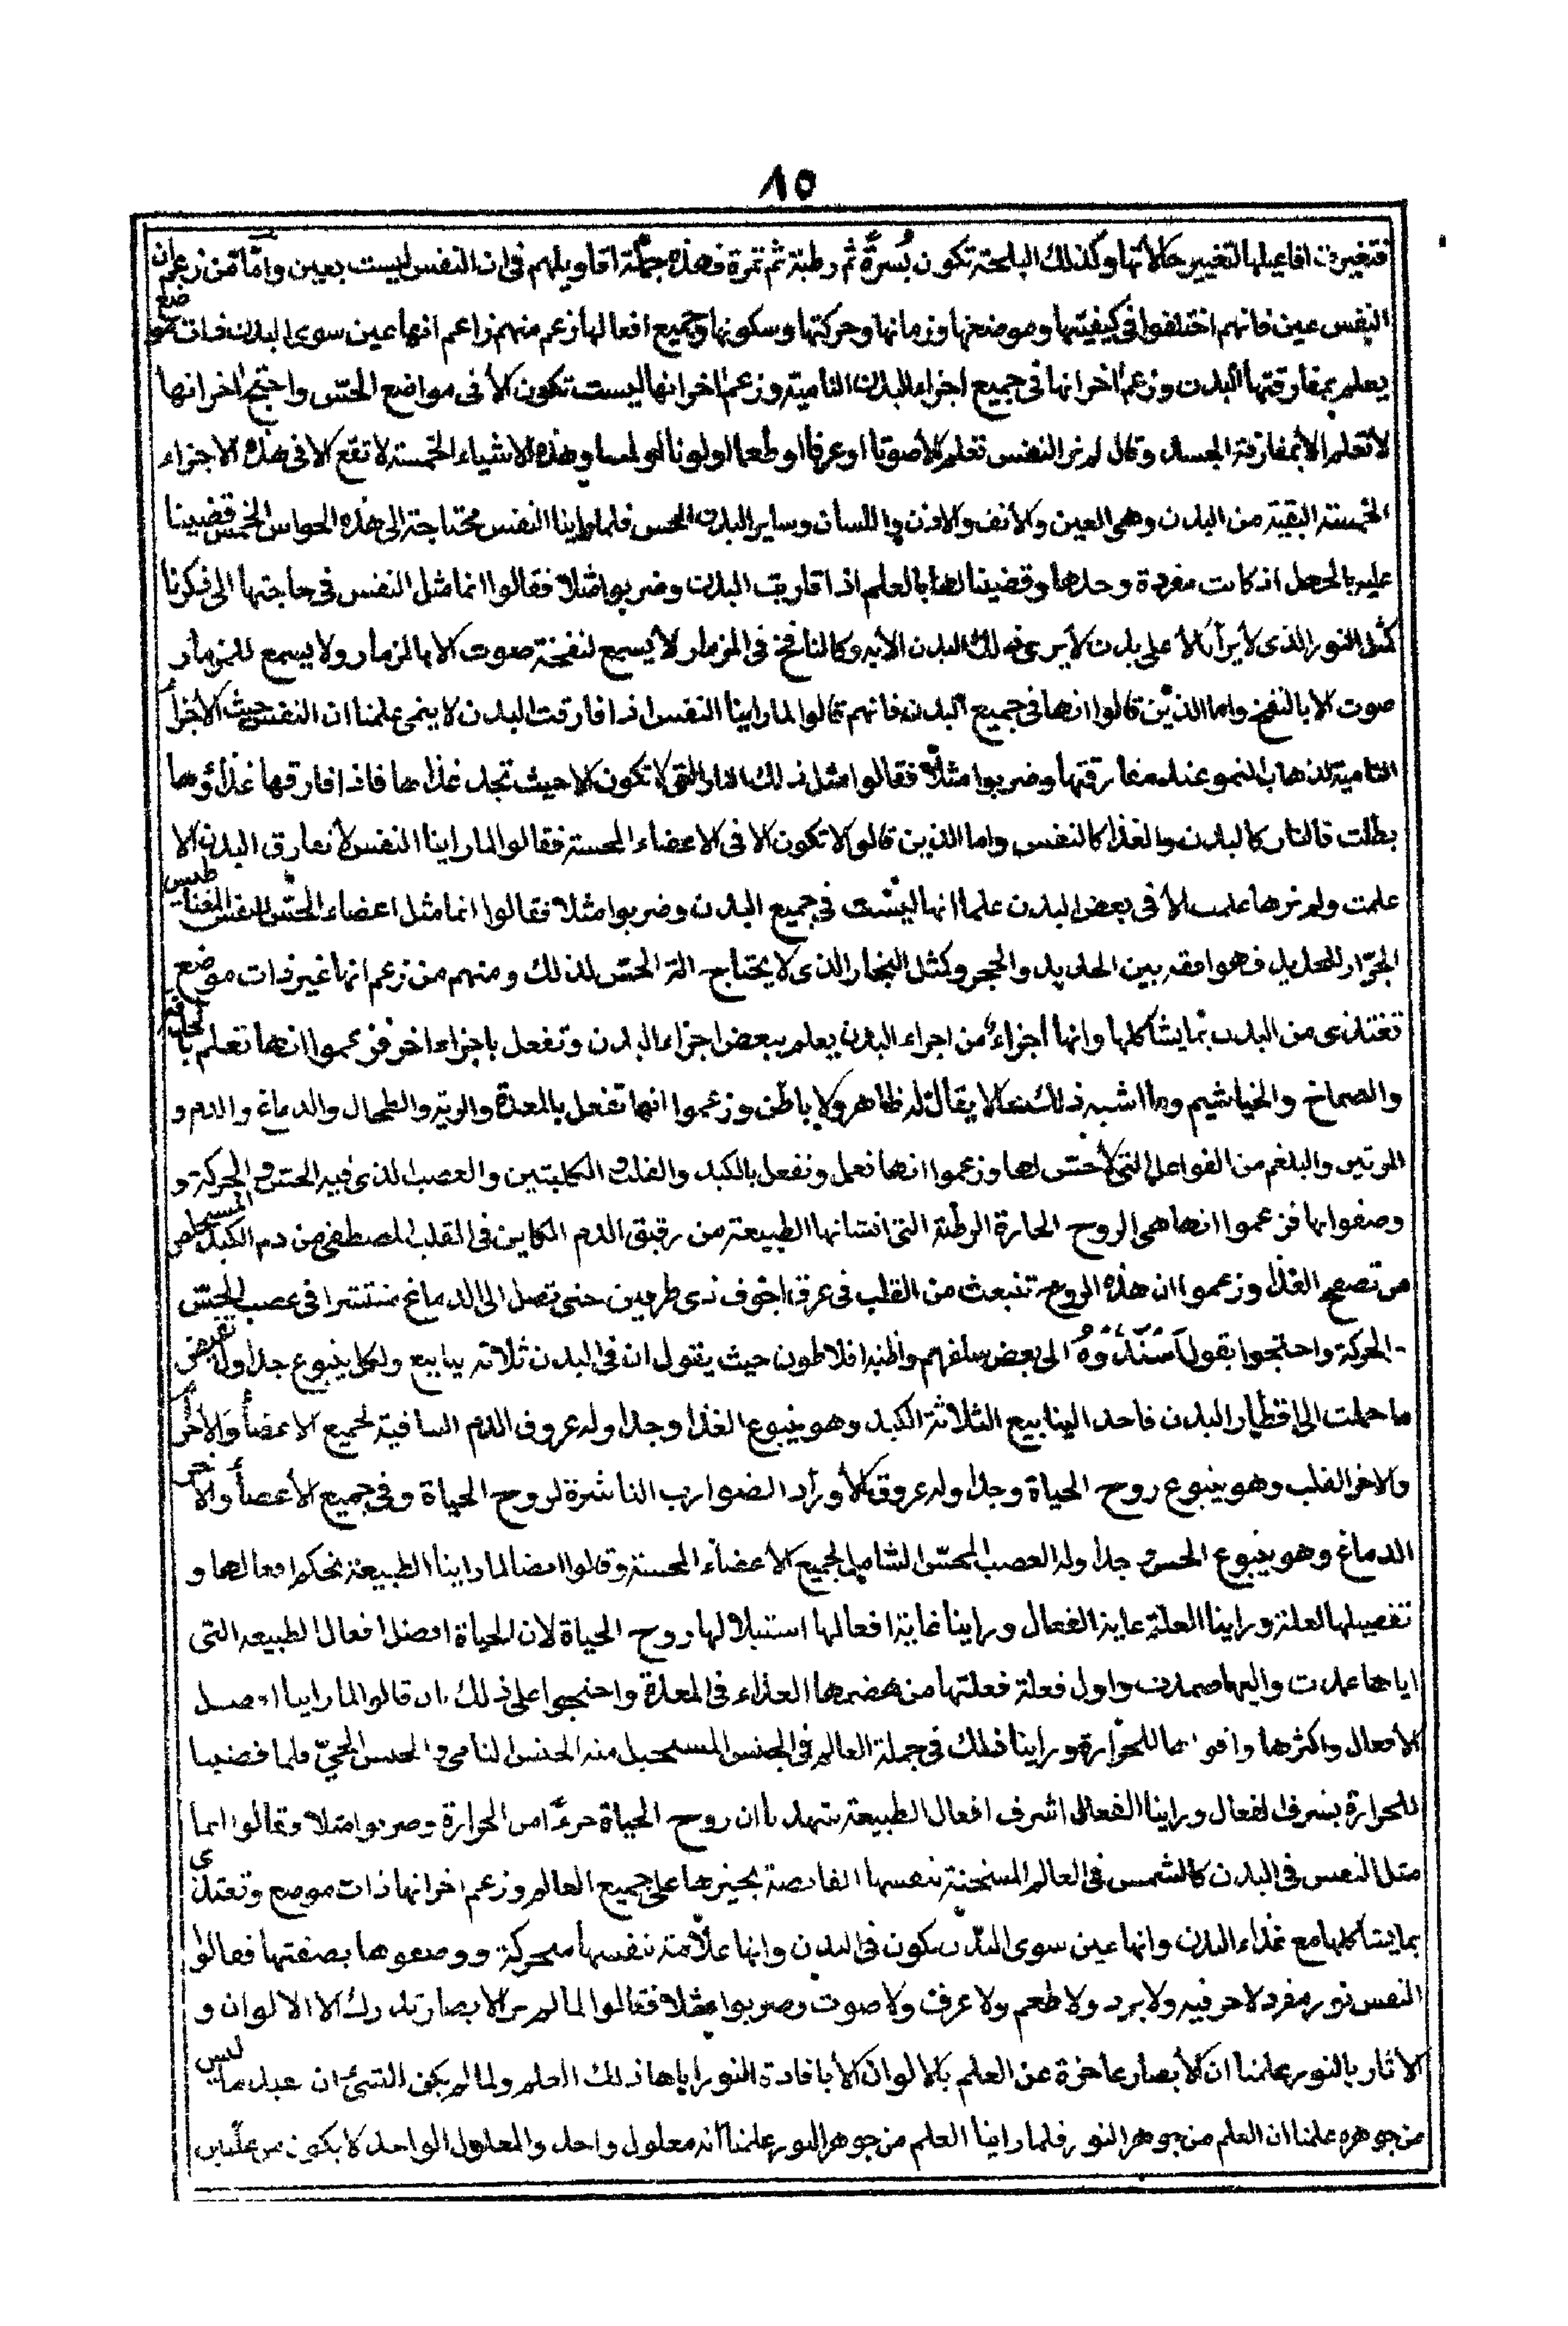 ١٥
فتغيرت افاعيلها لتغيير حالاتها وكذلك البلحة تكون بُسرةً ثم رطبة ثم تمرة فهذه جملة اقاويلهم في ان النفس ليست بعين وامّا من زعم ان
النفس عين فانهم اختلفوا في كيفيتها وموضعها وزمانها وحركتها وسكونها وجميع افعالها زعم منهم زاعم انها عين سوى البدن ذات موضع
يعلم بمفارقتها البدن وزعم اخر انها في جميع اجزاء البدن النامية وزعم اخر انها ليست تكون الا في مواضع الحسّ واحتج اخر انها
لا تعلم الا بمفارقة الجسد وقال لم نر النفس تعلم الا صوتا او عرفا او طعما او لونا او لمسا وهذه الاشياء الخمسة لا تقع الا في هذه الاجزاء
الخمسة البقية من البدن وهي العين والانف والاذن واللسان وساير البدن المحس فلما راينا النفس محتاجة الى هذه الحواس الخمس قضينا
عليه بالجهل اذ كانت مفردة وحدها وقضينا لها بالعلم اذا قاربت البدن وضربوا مثلا فقالوا انما مثل النفس في حاجتها الى فكرنا
كمثل النور الذي لا يرا الا على بدن لا يرى ذلك البدن الا به وكالنافخ في المزمار لا يسمع لنفخة صوت الا بالمزمار ولا يسمع للمزمار
صوت الا بالنفخ واما الذين قالوا انها في جميع البدن فانهم قالوا لما راينا النفس اذا فارقت البدن لا ينمى علمنا ان النفس حيث الاجزأ
النامية لذهاب النمو عند مفارقتها وضربوا مثلا فقالوا مثل ذلك النار التي لا تكون الا حيث تجد غذاها فاذا فارقها غذاؤها
بطلت فالنار كالبدن والغذا كالنفس واما الذين قالو لا تكون الا في الاعضاء المحسة فقالوا لما راينا النفس لا تفارق البدن الا
علمت ولم نرها علمت الا في بعض البدن علمنا انها ليست في جميع البدن وضربوا مثلا فقالوا انما مثل اعضاء الحسّ للنفس المغناطيس
الجرّار للحديد فهو افقه بين الحديد والحجر وكمثل البخار الذي لا يحتاج الة الحسّ لذلك ومنهم من زعم انها غير ذات موضع
تغتذى من البدن بما يشاكلها وانها اجزاء من اجزاء البدن يعلم ببعض اجزاء البدن وتفعل باجزاء اخر فزعموا انها تعلم
والصماخ والخياشيم وما اشبه ذلك مما لا يقال له ظاهر ولا باطن وزعموا انها تفعل بالمعدة والرية والطحال والدماغ والدم و
المرتين والبلغم من الفواعل التي لا حسّ لها وزعموا انها تعمل وتفعل بالكبد والقلب والكليتين والعصب الذي فيه الحسّ والحركة و
وصفوا بها فزعموا انها هي الروح الحارة الرطبة التي انشاتها الطبيعة من رقيق الدم الكاين في القلب المصطفى من دم الكبد
من تصحيح الغذا وزعموا ان هذه الروح تنبعث من القلب في عرق اجوف ذى طرفين حتى تصل الى الدماغ منتشرا في عصب الحسّ
والحركة واحتجوا بقول اسندوه الى بعض سلفهم واظنه افلاطون حيث يقول ان في البدن ثلاثة ينابيع ولكل ينبوع جداول تفيض
ما حملت الى اقطار البدن فاحد الينابيع الثلاثة الكبد وهو ينبوع الغذا وجداوله عروق الدم الساقية لجميع الاعضأ والاجزأ
والاخر القلب وهو ينبوع روح الحياة وجداوله عروق الاوراد الضوارب الناشرة لروح الحياة وفي جميع الاعضأ والاخر
الدماغ وهو ينبوع الحس وجداوله العصب المحسّ الشامل لجميع الاعضاء المحسة وقالوا ايضا لما راينا الطبيعة تحكم افعالها و
تفصيلها لعلة وراينا العلة غاية الفعال وراينا غاية افعالها استبلالها روح الحياة لان الحياة افضل افعال الطبيعه التي
اياها عمدت واليها صمدت واول فعلة فعلتها من هضمها الغذاء في المعدة واحتجوا على ذلك بان قالوا لما راينا افضل
الافعال واكثرها واقواها للحرارة وراينا ذلك في جملة العالم في الجنس المستحيل منه الجنس النامي والجنس الحيّ فلما قضينا
للحرارة بشرف الفعال وراينا الفعال اشرف افعال الطبيعة شهدنا ان روح الحياة جزءًا من الحرارة وضربوا مثلا وقالوا انما
مثل النفس في البدن كالشمس في العالم المسخنة نفسها الفايضة بخيرها على جميع العالم وزعم اخر انها ذات موضع وتغتذى
بما يشاكلها مع غذاء البدن وانها عين سوى البدن تكون في البدن وانها علامة نفسها متحركة ووصفوها بصفتها فقالوا
النفس نور مفرد لا حر فيه ولا برد ولا طعم ولا عرف ولا صوت وضربوا مثلا فقالوا لما لم نر الابصار تدرك الا الالوان و
الاثار بالنور علمنا ان الابصار عاجزة عن العلم بالالوان الا بافادة النور اياها ذلك العلم ولما لم يكن الشئ ان عبد ما ليس
من جوهره علمنا ان العلم من جوهر النور فلما راينا العلم من جوهر النور علمنا انه معلول واحد والمعلول الواحد لا يكون من علّتين